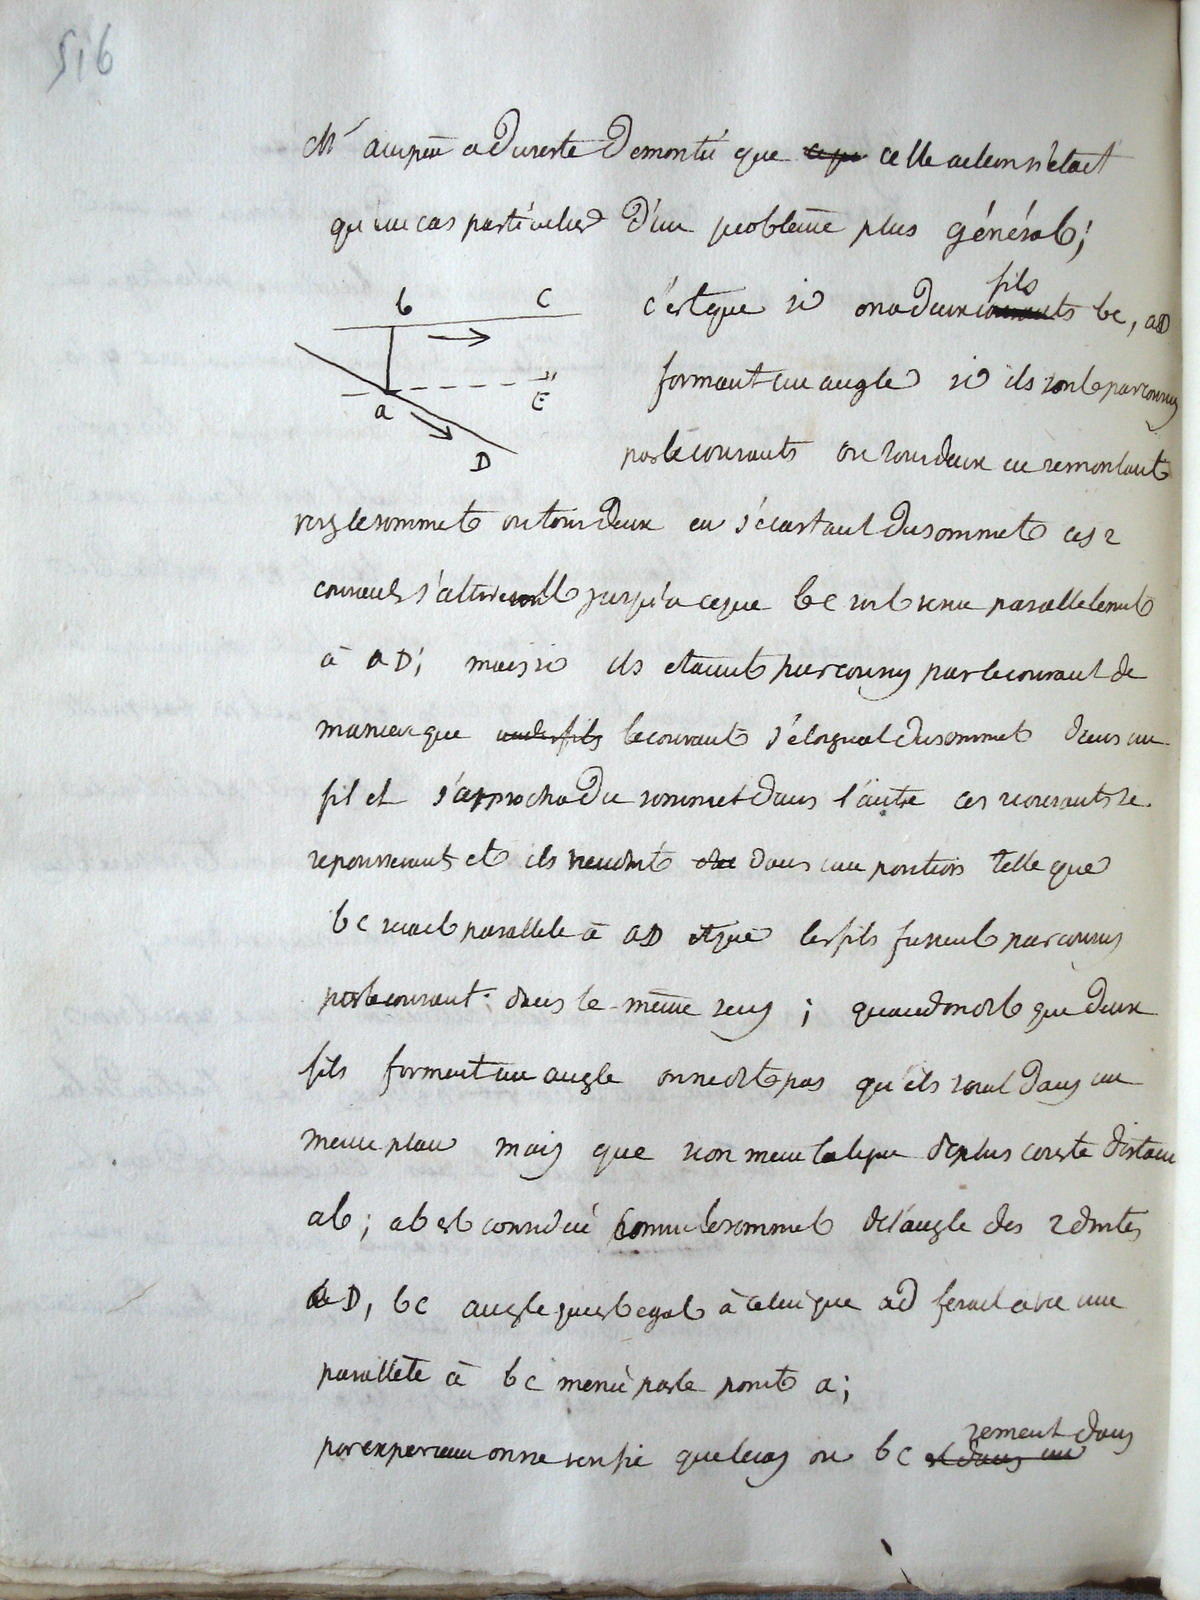 516
Mr ampère a du reste demontré que <s>ce qu</s> celle action n'etait
qu'un cas particulier d'un problème plus général;
c'est que si on a deux <s>courants</s> fils bc, aD
formant un angle si ils sont parcourus
par le courants ou tous deux en remontant
vers le sommet ou tous deux en s'écartant du sommet ces 2
courants s'attireront jusqu'a ce que bc soit venu parallelement
à aD; mais si ils etaient parcourus par le courant de
maniere que le courant s'éloignat du sommet dans un
fil et s'approcha du sommet dans l'autre ces courants se
repousseraient et ils viendront dans une position telle que
bc serait parallele à aD et que les fils fussent parcourus
par le courant dans le même sens; quand on dit que deux
fils forment un angle on ne dit pas qu'ils sont dans un
meme plan mais que si on mene la ligne de plus courte distance
ab; ab est consideré comme le sommet de l'angle des 2 droites
aD, bc angle qui est egal à celui que ad ferait avec une
parallele à bc mené par le point a;
par experience on ne verifie que le cas ou bc <s>est dans un</s> se meut dans
b C
a E
D